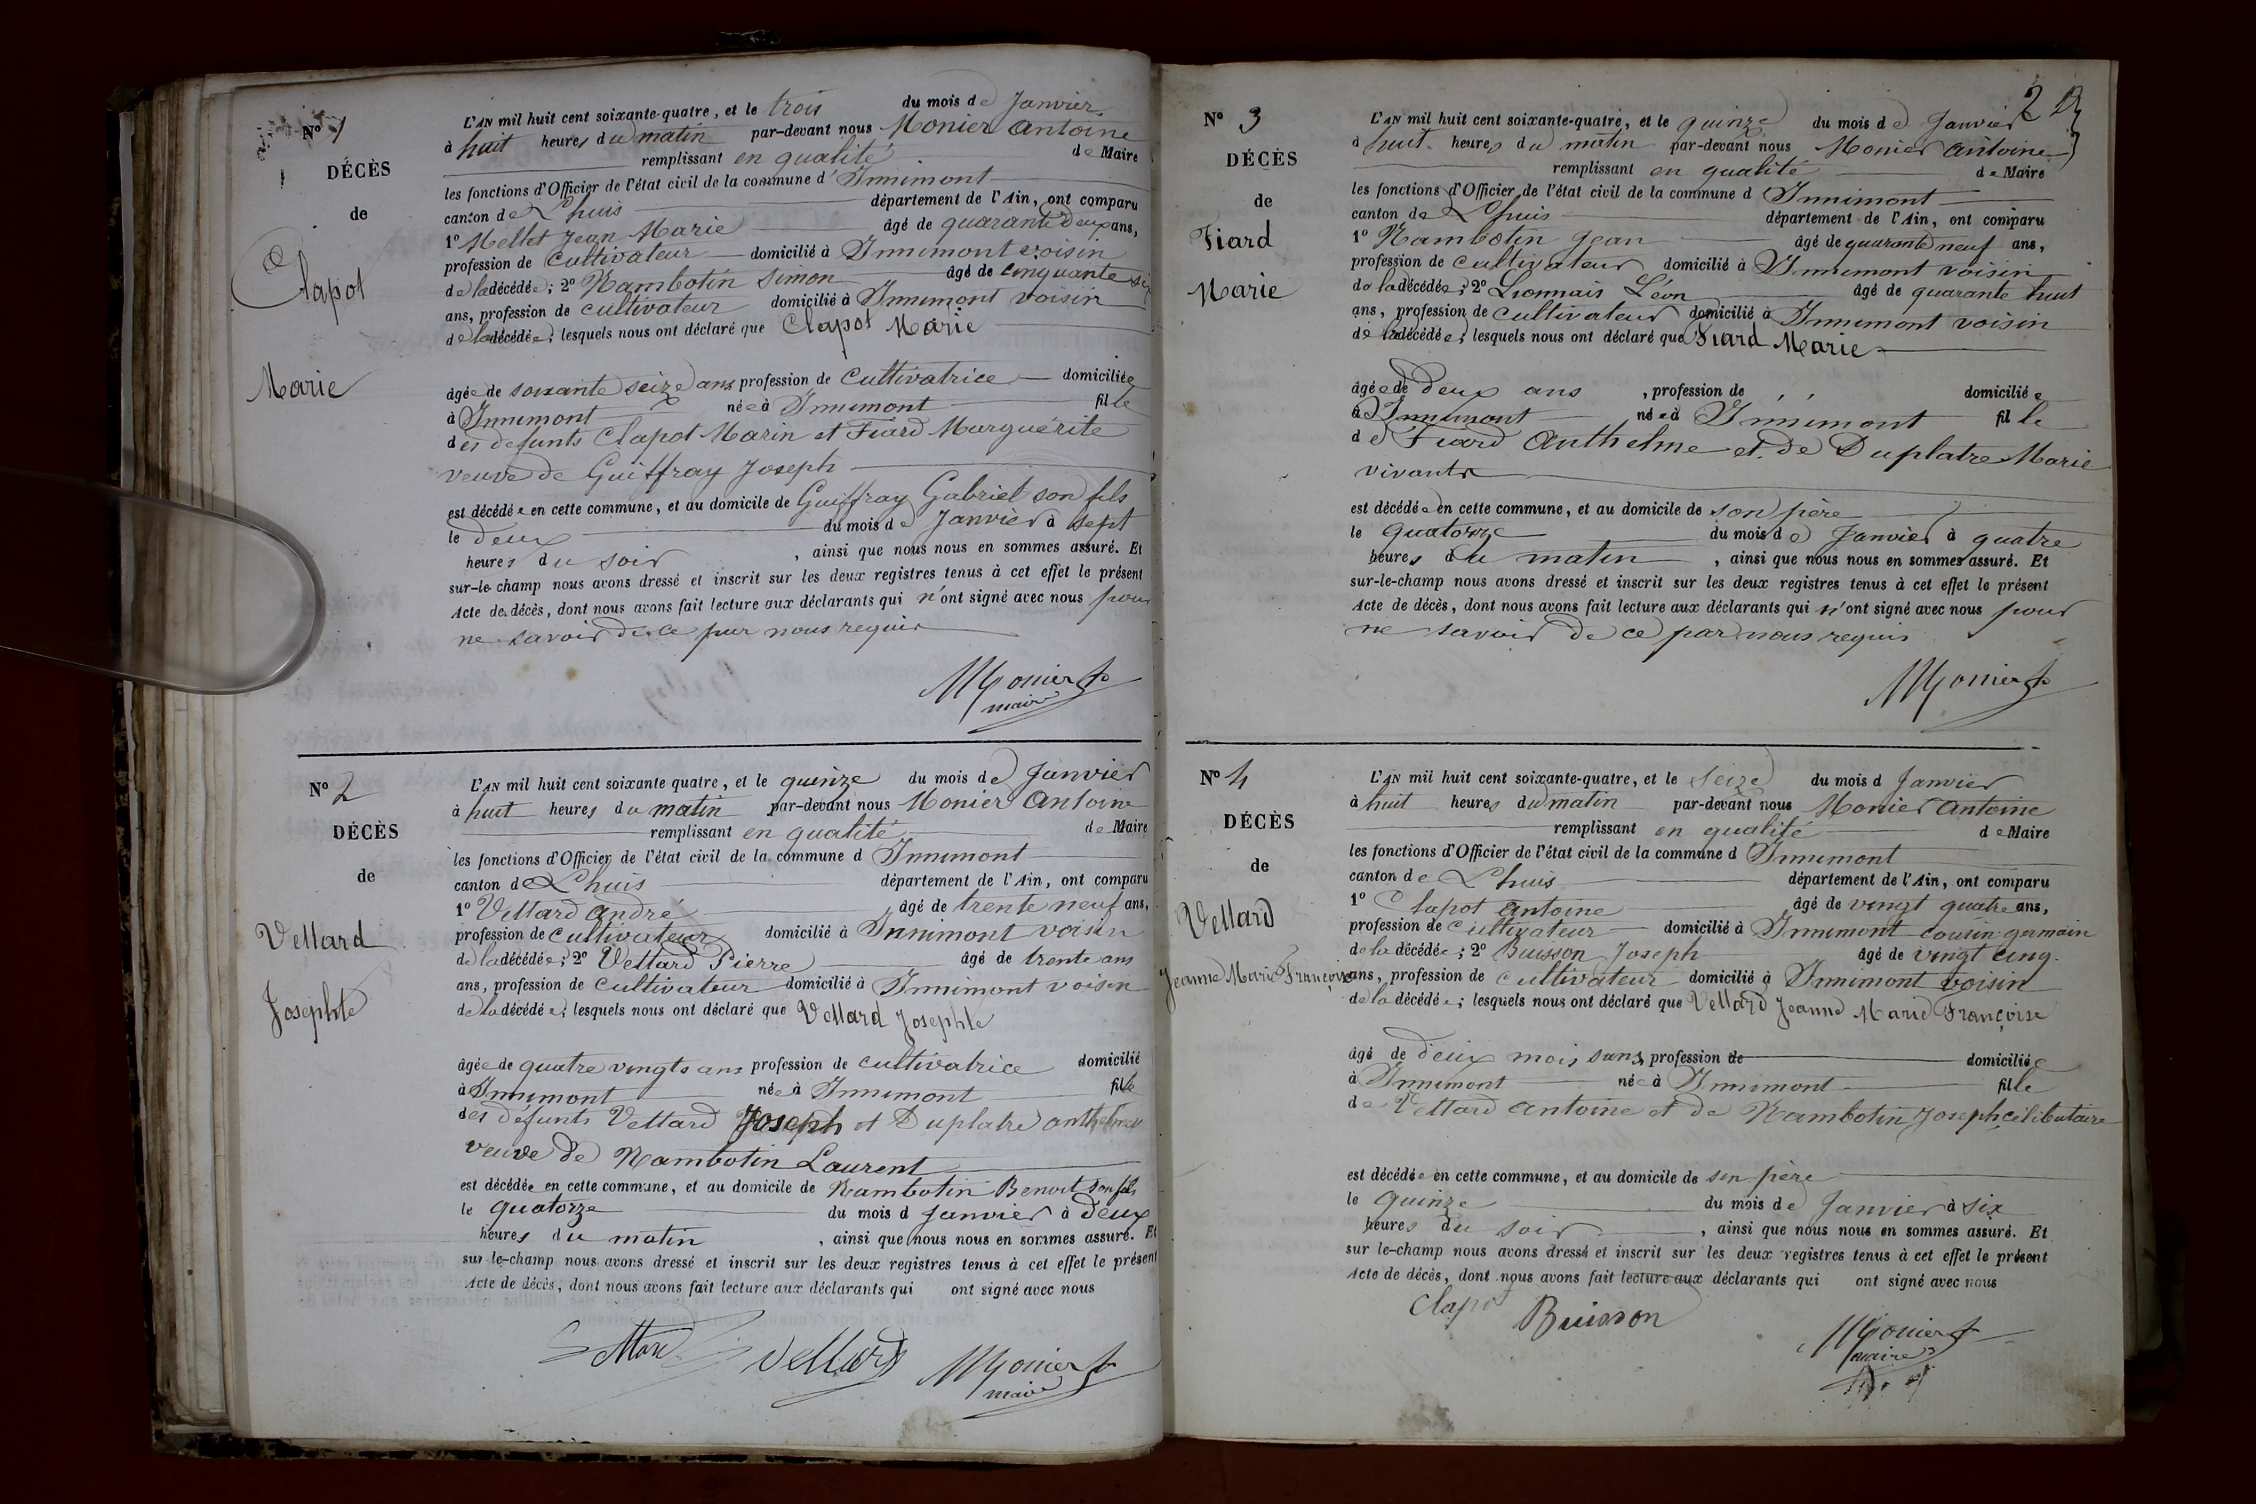 Nº 1
DÉCÈS
de
Clapot
Marie
L'AN mil huit cent soixante-quatre, et le trois du mois de Janvier
à huit heures du matin par-devant nous Monier Antoine
remplissant en qualité de Maire
les fonctions d'Officier de l'état civil de la commune d'Innimont
canton de Lhuis département de l'Ain, ont comparu
1º Mellet Jean Marie âgé de quarante deux ans,
profession de cultivateur domicilié à Innimont voisin
de la décédée; 2º Rambotin Simon âgé de cinquante six
ans, profession de cultivateur domicilié à Innimont voisin
de la décédée; lesquels nous ont déclaré que Clapot Marie
âgée de soixante seize ans profession de cultivatrice domiciliée
à Innimont née à Innimont fille
des défunts Clapot Marin et Fiard Marguérite
veuve de Guiffray Joseph
est décédée en cette commune, et au domicile de Guiffray Gabriel son fils
le deux du mois de Janvier à sept
heures du soir, ainsi que nous nous en sommes assuré. Et
sur-le-champ nous avons dressé et inscrit sur les deux registres tenus à cet effet le présent
Acte de décès, dont nous avons fait lecture aux déclarants qui n'ont signé avec nous pour
ne savoir de ce par nous requis
Monier
maire
Nº 2
DÉCÈS
de
Vettard
Josephte
L'AN mil huit cent soixante quatre, et le quinze du mois de Janvier
à huit heures du matin par-devant nous Monier Antoine
remplissant en qualité de Maire
les fonctions d'Officier de l'état civil de la commune d Innimont
canton de Lhuis département de l'Ain, ont comparu
1º Vettard André âgé de trente neuf ans,
profession de cultivateur domicilié à Innimont voisin
de la décédée; 2º Vettard Pierre âgé de trente ans
ans, profession de cultivateur domicilié à Innimont voisin
de la décédée; lesquels nous ont déclaré que Vettard Josephte
âgée de quatre vingts ans profession de cultivatrice domicilié
à Innimont née à Innimont fille
des défunts Vettard Joseph et Duplatre
veuve de Rambotin Laurent
est décédée en cette commune, et au domicile de Rambotin Benoit son fils
le quatorze du mois d Janvier à deux
heures du matin, ainsi que nous nous en sommes assuré. Et
sur le-champ nous avons dressé et inscrit sur les deux registres tenus à cet effet le présent
Acte de décès, dont nous avons fait lecture aux déclarants qui ont signé avec nous
Vettard Monier
maire
Nº 3
2
DÉCÈS
de
Fiard
Marie
L'AN mil huit cent soixante-quatre, et le quinze du mois de Janvier
à huit heures du matin par-devant nous Monier Antoine
remplissant en qualité de Maire
les fonctions d'Officier de l'état civil de la commune d Innimont
canton de Lhuis département de l'Ain, ont comparu
1º Rambotin Jean âgé de quarante neuf ans,
profession de cultivateur domicilié à Innimont voisin
de la décédée; 2º Lionnais Léon âgé de quarante huit
ans, profession de cultivateur domicilié à Innimont voisin
de la décédée; lesquels nous ont déclaré que Fiard Marie
âgée de deux ans, profession de domiciliée
à Innimont née à Innimont fille
de Fiard Anthelme et de Duplatre Marie
vivants
est décédée en cette commune, et au domicile de son père
le quatorze du mois de Janvier à quatre
heures du matin, ainsi que nous nous en sommes assuré. Et
sur-le-champ nous avons dressé et inscrit sur les deux registres tenus à cet effet le présent
Acte de décès, dont nous avons fait lecture aux déclarants qui n'ont signé avec nous pour
ne savoir de ce par nous requis
Monier
Nº 4
DÉCÈS
de
Vettard
Jeanne Marie Françoise
L'AN mil huit cent soixante-quatre, et le seize du mois d Janvier
à huit heures du matin par-devant nous Monier Antoine
remplissant en qualité de Maire
les fonctions d'Officier de l'état civil de la commune d Innimont
canton de Lhuis département de l'Ain, ont comparu
1º Clapot Antoine âgé de vingt quatre ans,
profession de cultivateur domicilié à Innimont cousin germain
de la décédée; 2º Buisson Joseph âgé de vingt cinq
ans, profession de cultivateur domicilié à Innimont voisin
de la décédée; lesquels nous ont déclaré que Vettard Jeanne Marie Françoise
âgé de deux mois sans profession de domiciliée
à Innimont née à Innimont fille
de Vettard Antoine et de Rambotin Joseph célibataire
est décédée en cette commune, et au domicile de son père
le quinze du mois de Janvier à six
heures du soir, ainsi que nous nous en sommes assuré. Et
sur le-champ nous avons dressé et inscrit sur les deux registres tenus à cet effet le présent
Acte de décès, dont nous avons fait lecture aux déclarants qui ont signé avec nous
Clapot Buisson Monier
maire